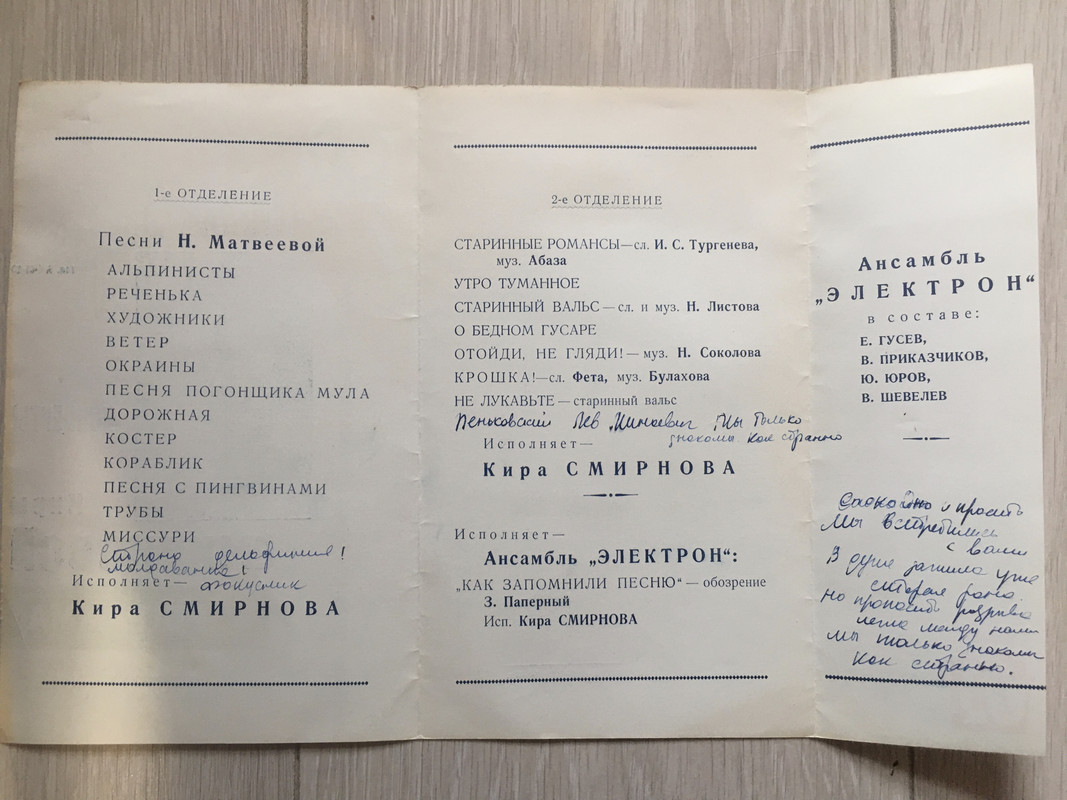 1-е ОТДЕЛЕНИЕ
Песни Н. Матвеевой
АЛЬПИНИСТЫ
РЕЧЕНЬКА
ХУДОЖНИКИ
ВЕТЕР
ОКРАИНЫ
ПЕСНЯ ПОГОНЩИКА МУЛА
ДОРОЖНАЯ
КОСТЕР
КОРАБЛИК
ПЕСНЯ С ПИНГВИНАМИ
ТРУБЫ
МИССУРИ
Страна дельфиния!
молдаване!
Исполняет— фокусник
Кира СМИРНОВА
2-е ОТДЕЛЕНИЕ
СТАРИННЫЕ РОМАНСЫ—сл. И. С. Тургенева,
муз. Абаза
УТРО ТУМАННОЕ
СТАРИННЫЙ ВАЛЬС—сл. и муз. Н. Листова
О БЕДНОМ ГУСАРЕ
ОТОЙДИ, НЕ ГЛЯДИ!—муз. Н. Соколова
КРОШКА!—сл. Фета, муз. Булахова
НЕ ЛУКАВЬТЕ—старинный вальс
Пеньковский Лев Мы только
знакомы как странно
Исполняет—
Кира СМИРНОВА
Исполняет—
Ансамбль „ЭЛЕКТРОН“:
„КАК ЗАПОМНИЛИ ПЕСНЮ“—обозрение
З. Паперный
Исп. Кира СМИРНОВА
Ансамбль
„ЭЛЕКТРОН“
в составе:
Е. ГУСЕВ,
В. ПРИКАЗЧИКОВ,
Ю. ЮРОВ,
В. ШЕВЕЛЕВ
и просто
Мы встретились
с вами
В душе зажила уже
старая рана
Но пропасть разрыва
легла между нами
Мы только знакомы
как странно.